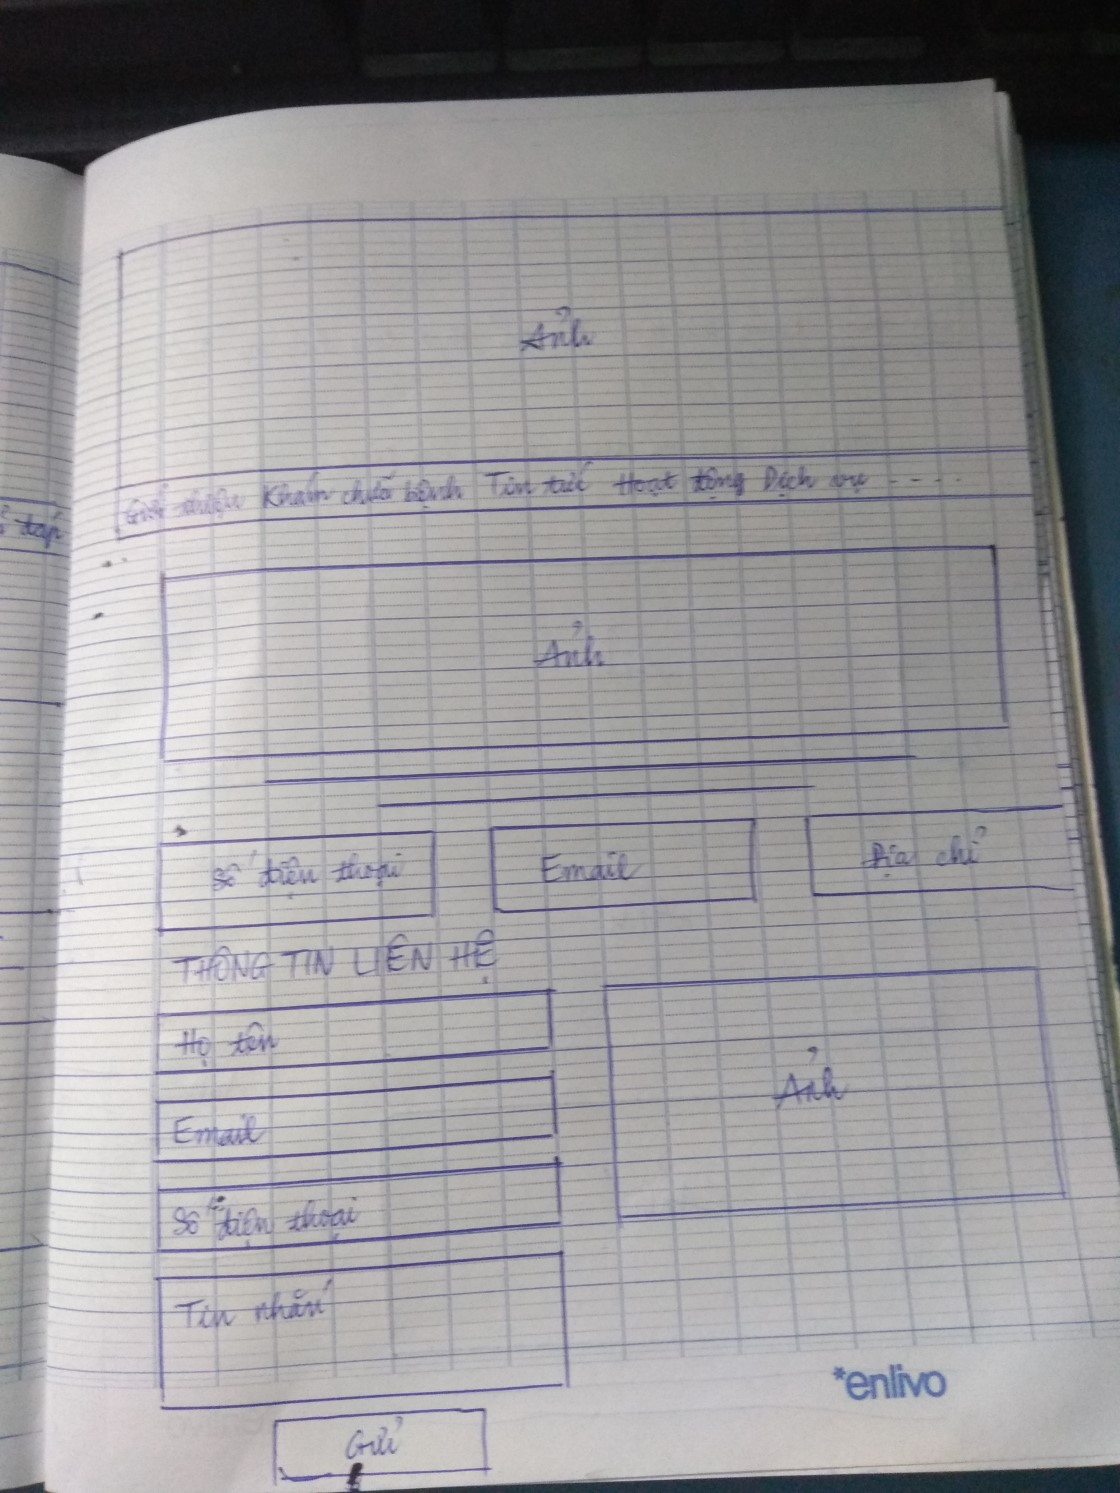 Ảnh
Giới thiệu Khám chữa bệnh Tin tức Hoạt động Dịch vụ ....
Ảnh
Số điện thoại Email Địa chỉ
THÔNG TIN LIÊN HỆ
Họ tên
Email
Ảnh
Số điện thoại
Tin nhắn
*enlivo
Gửi